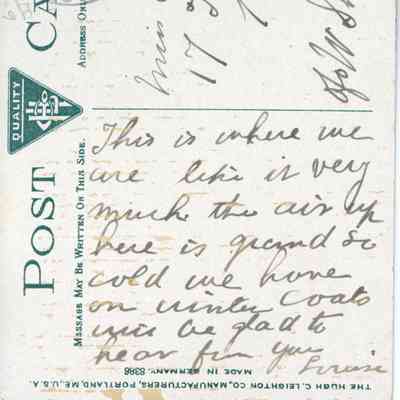 POST CA
ADDRESS ONL
MESSAGE MAY BE WRITTEN ON THIS SIDE.
QUALITY
Miss
17
c/o W S
This is where we
are like it very
much the air up
here is grand so
cold we have
on winter coats
will be glad to
hear from you
Louise
THE HUGH C. LEIGHTON CO., MANUFACTURERS, PORTLAND, ME., U.S.A.
MADE IN GERMANY. 8386